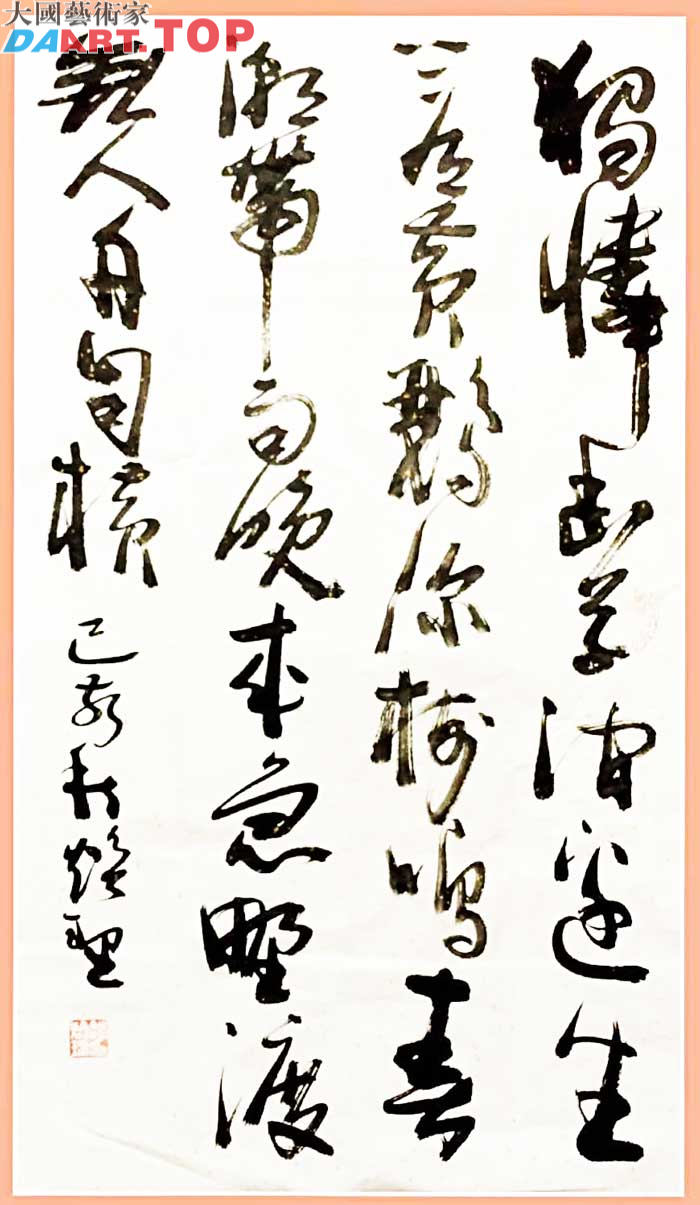 大國藝術家
DAART.TOP
獨憐幽草澗邊生
上有黃鸝深樹鳴春
潮帶雨晚來急野渡
無人舟自橫
己亥秋